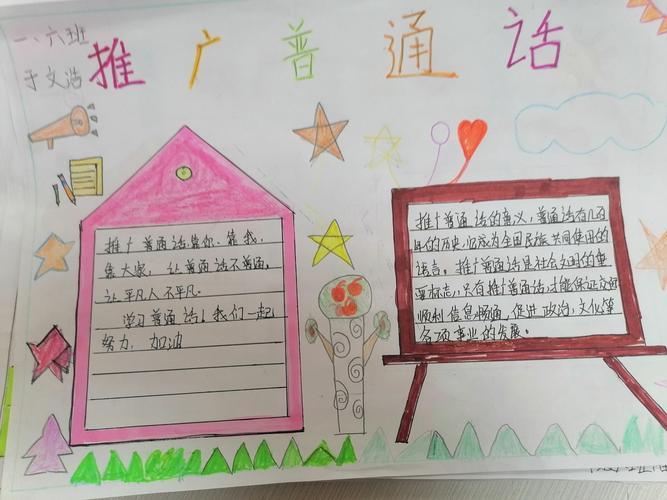 一、六班
于文浩
推广普通话
推广普通话靠你、靠我,
靠大家, 让普通话不普通,
让平凡人不平凡。
学习普通话!我们一起
努力, 加油
推广普通话的意义,普通话有几百
年的历史,归成为全国民族共同使用的
语言。推广普通话是社会文明的重
要标志,只有推广普通话,才能保证交流
顺利信息畅通, 促进政治, 文化等
各项事业的发展。